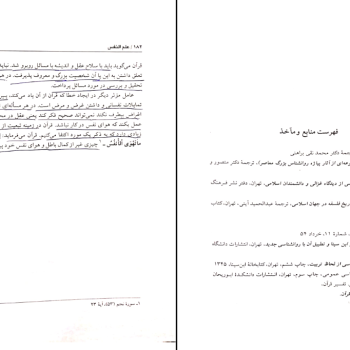 ۱۸۲ / علم النفس
قرآن می‌گوید باید با سلاح عقل و اندیشه با مسائل روبرو شد. نباید
تعلق داشتن به این یا آن شخصیت بزرگ و معروف پذیرفت، در
تحقیق و بررسی در مورد مسائل پرداخت.
عامل مؤثر دیگر در ایجاد خطا که قرآن از آن یاد می‌کند،
تمایلات نفسانی و داشتن غرض و مرض است. در هر مسأله‌ای
اظهار بیطرف نکند نمی‌تواند صحیح فکر کند یعنی عقل در
عمل بکند که هوای نفس در کار نباشد. قرآن در زمینه تبعیت از
زیادی دارد که به ذکر یک مورد اکتفا می‌کنیم. قرآن می‌فرماید:
ما تَهْوَی الْأَنْفُسُ ـ ۱ چیزی غیر از گمان باطل و هوای نفس خود
۱ـ سوره نجم (۵۳)، آیه ۲۳
فهرست منابع و مآخذ
ترجمه دکتر محمد نقی براهنی
از آثار پیاژه روانشناس بزرگ معاصر)، ترجمه دکتر منصور و
از دیدگاه غزالی و دانشمندان اسلامی، تهران، دفتر نشر فرهنگ
تاریخ فلسفه در جهان اسلامی، ترجمه عبدالمحمد آیتی، تهران، کتاب
شماره ۱۱، خرداد ۵۴
ابن سینا و تطبیق آن با روانشناسی جدید، تهران، انتشارات دانشگاه
از لحاظ تربیت، چاپ ششم، تهران، کتابخانه ابن‌سینا، ۱۳۴۵
عمومی، چاپ سوم، تهران، انتشارات دانشکده ابوریحان
تفسیر قرآن.
قرآن.